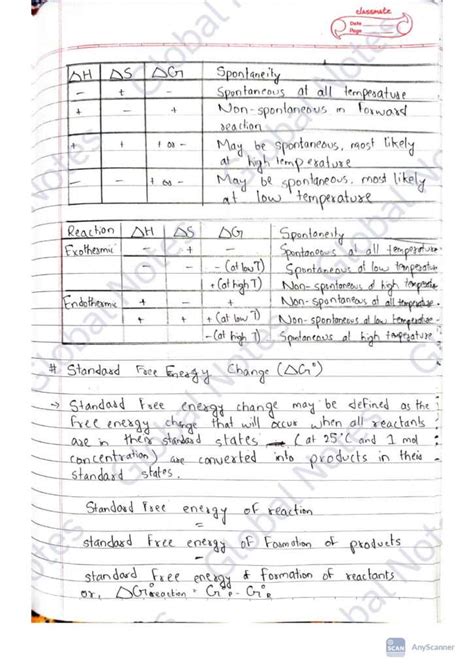 classmate
Date
Page
ΔH ΔS ΔG Spontaneity
- + - Spontaneous at all temperature
+ - + Non-spontaneous in forward
reaction
+ + + or - May be spontaneous, most likely
at high temperature
- - + or - May be spontaneous, most likely
at low temperature
Reaction ΔH ΔS ΔG Spontaneity
Exothermic - + - Spontaneous at all temperature
- - - (at low T) Spontaneous at low temperature
+ (at high T) Non-spontaneous at high temperature
Endothermic + - + Non-spontaneous at all temperature
+ + + (at low T) Non-spontaneous at low temperature
- (at high T) Spontaneous at high temperature
# Standard Free Energy Change (ΔG°)
→ Standard free energy change may be defined as the
free energy change that will occur when all reactants
are in their standard states (at 25°C and 1 mol
concentration) are converted into products in their
standard states.
Standard free energy of reaction
=
standard free energy of formation of products
-
standard free energy of formation of reactants
or, ΔG° reaction = G°P - G°R
Global Notes
SCAN AnyScanner